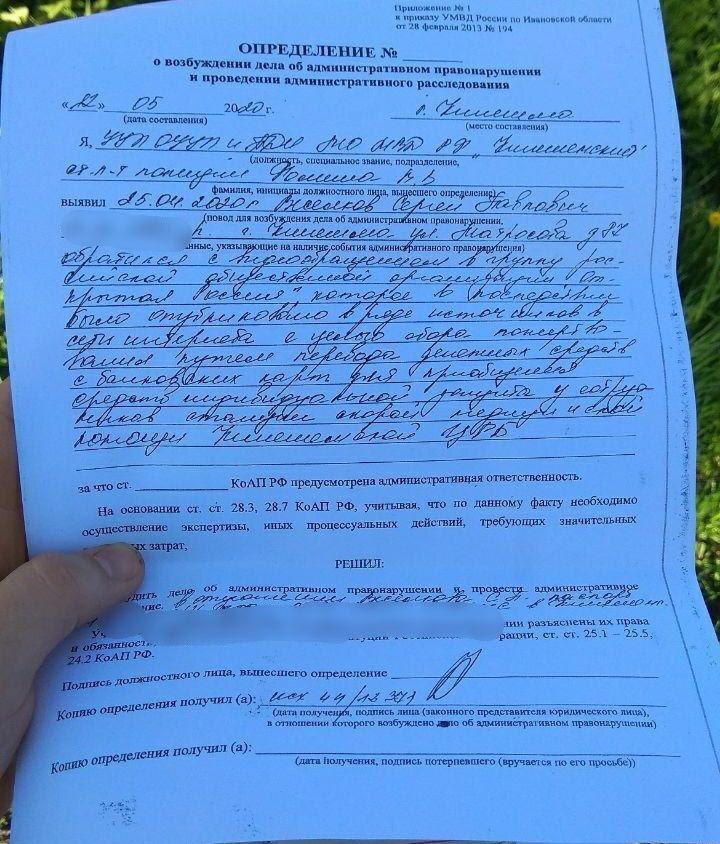 Приложение № 1
к приказу УМВД России по Ивановской области
от 28 февраля 2013 № 194
ОПРЕДЕЛЕНИЕ №
о возбуждении дела об административном правонарушении
и проведении административного расследования
« 22 » 05 2020 г. г. Кинешма
(дата составления) (место составления)
Я, УУП ОУУП и ПДН МО МВД РФ "Кинешемский"
(должность, специальное звание, подразделение,
ст. л-т полиции
фамилия, инициалы должностного лица, вынесшего определение)
выявил 25.04.2020г Сергей Павлович
(повод для возбуждения дела об административном правонарушении,
г. Кинешма ул. Матросова д
нные, указывающие на наличие события административного правонарушения)
обратился с видеообращением в группу рос-
сийской общественной организации "От-
крытая Россия", которое в последствии
было опубликовано в ряде источников в
сети интернета с целью сбора пожертво-
вания путем перевода денежных средств
с банковских карт для приобретения
средств индивидуальной защиты у сотруд
ников станции скорой медицинской
помощи Кинешемской ЦРБ
за что ст. КоАП РФ предусмотрена административная ответственность.
На основании ст. ст. 28.3, 28.7 КоАП РФ, учитывая, что по данному факту необходимо
осуществление экспертизы, иных процессуальных действий, требующих значительных
ых затрат,
РЕШИЛ:
дить дело об административном правонарушении и провести административное
ние. в отношении
нии разъяснены их права
и обязанност рации, ст. ст. 25.1 – 25.5,
24.2 КоАП РФ.
Подпись должностного лица, вынесшего определение
Копию определения получил (а): исх 44/12
(дата получения, подпись лица (законного представителя юридического лица),
в отношении которого возбуждено дело об административном правонарушении)
Копию определения получил (а):
(дата получения, подпись потерпевшего (вручается по его просьбе))